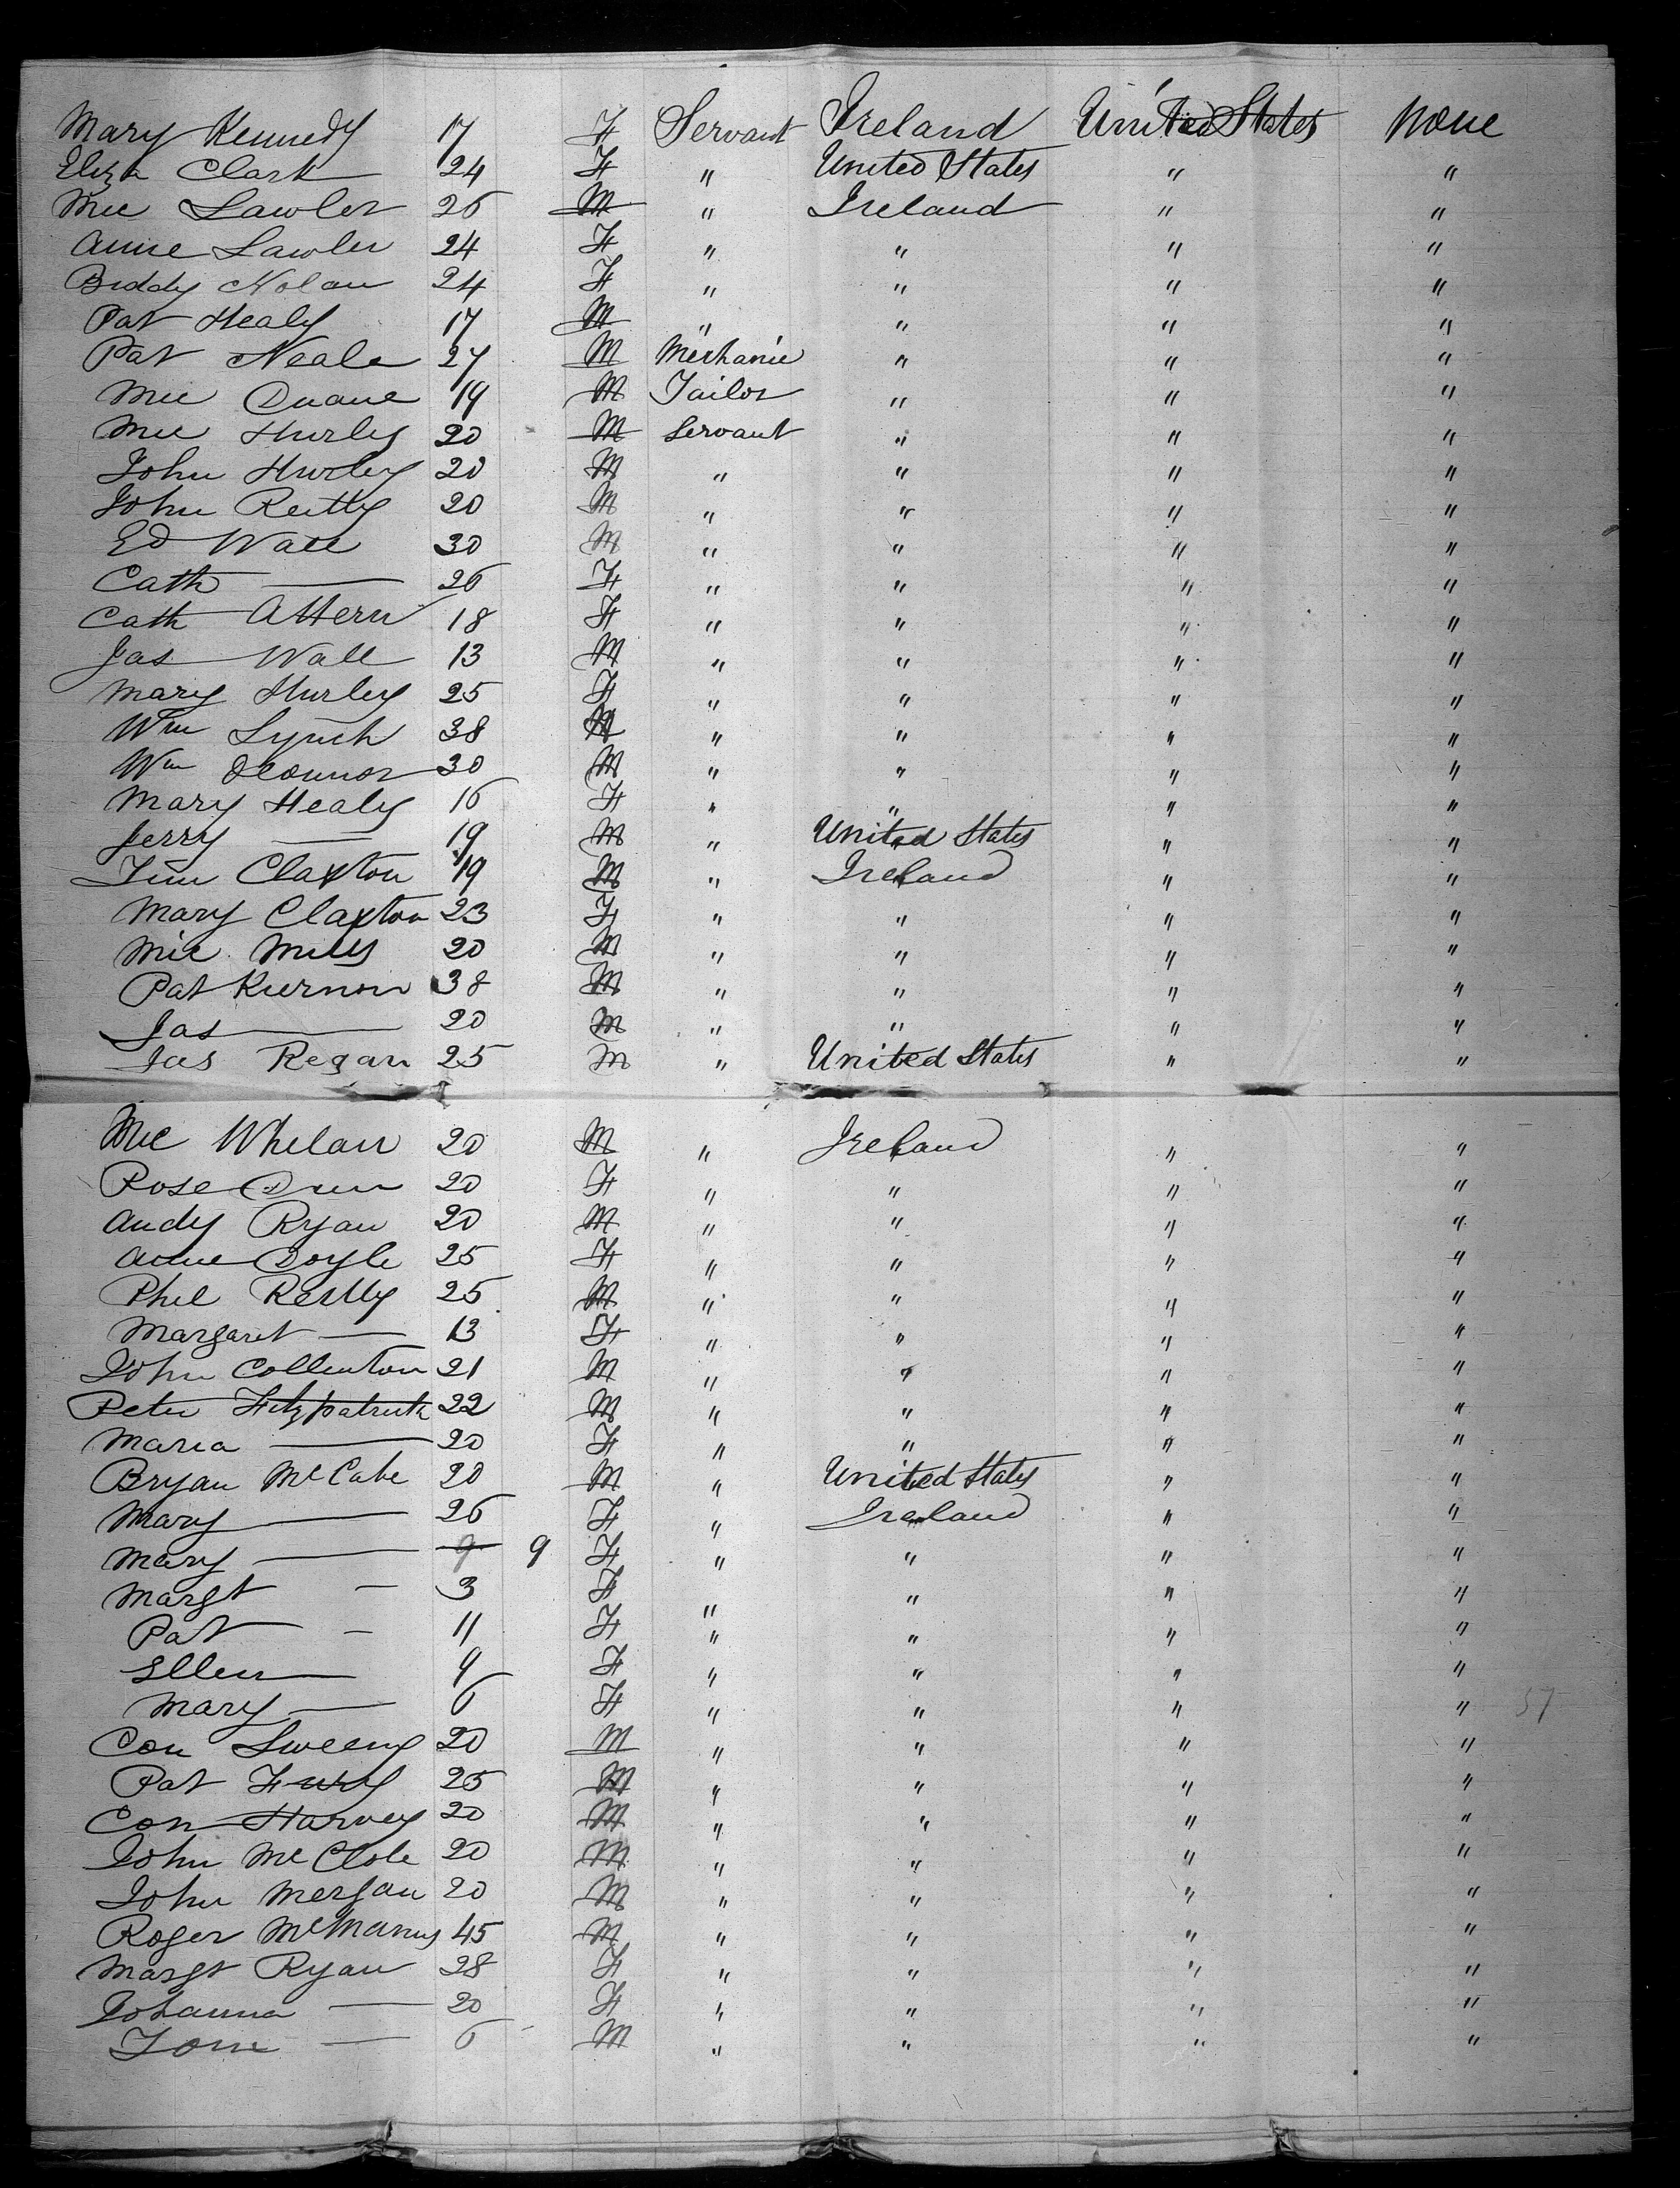 Mary Kennedy 17 F Servant Ireland United States None
Eliza Clark 24 F " United States " "
Mic Lawlor 26 M " Ireland " "
Anne Lawler 24 F " " " "
Biddy Nolan 24 F " " " "
Pat Healy 17 M " " " "
Pat Neale 27 M Mechanic " " "
Mic Duane 19 M Tailor " " "
Mic Hurley 20 M Servant " " "
John Hurley 20 M " " " "
John Reilly 20 M " " " "
Ed Wall 30 M " " " "
Cath — 26 F " " " "
Cath Attern 18 F " " " "
Jas Wall 13 M " " " "
Mary Hurley 25 F " " " "
Wm Lynch 38 M " " " "
Wm OConnor 30 M " " " "
Mary Healy 16 F " " " "
Jerry — 19 M " United States " "
Tim Claxton 19 M " Ireland " "
Mary Claxton 23 F " " " "
Mic Mills 20 M " " " "
Pat Kiernon 38 M " " " "
Jas — 20 M " " " "
Jas Regan 25 M " United States " "
Mic Whelan 20 M " Ireland " "
Rose Dun 20 F " " " "
Andy Ryan 20 M " " " "
Anne Doyle 25 F " " " "
Phil Reilly 25 M " " " "
Margaret — 13 F " " " "
John Collenton 21 M " " " "
Peter Fitzpatrick 22 M " " " "
Maria — 20 F " " " "
Bryan McCabe 20 M " United States " "
Mary — 26 F " Ireland " "
Mary — 9 9 F " " " "
Margt — 3 F " " " "
Pat — 11 F " " " "
Ellen — 9 F " " " "
Mary — 6 F " " " " 57
Con Sweeny 20 M " " " "
Pat Fury 25 M " " " "
Con Harvey 20 M " " " "
John McClole 20 M " " " "
John Mergan 20 M " " " "
Roger McManus 45 M " " " "
Margt Ryan 28 F " " " "
Johanna — 20 F " " " "
Tom — 6 M " " " "